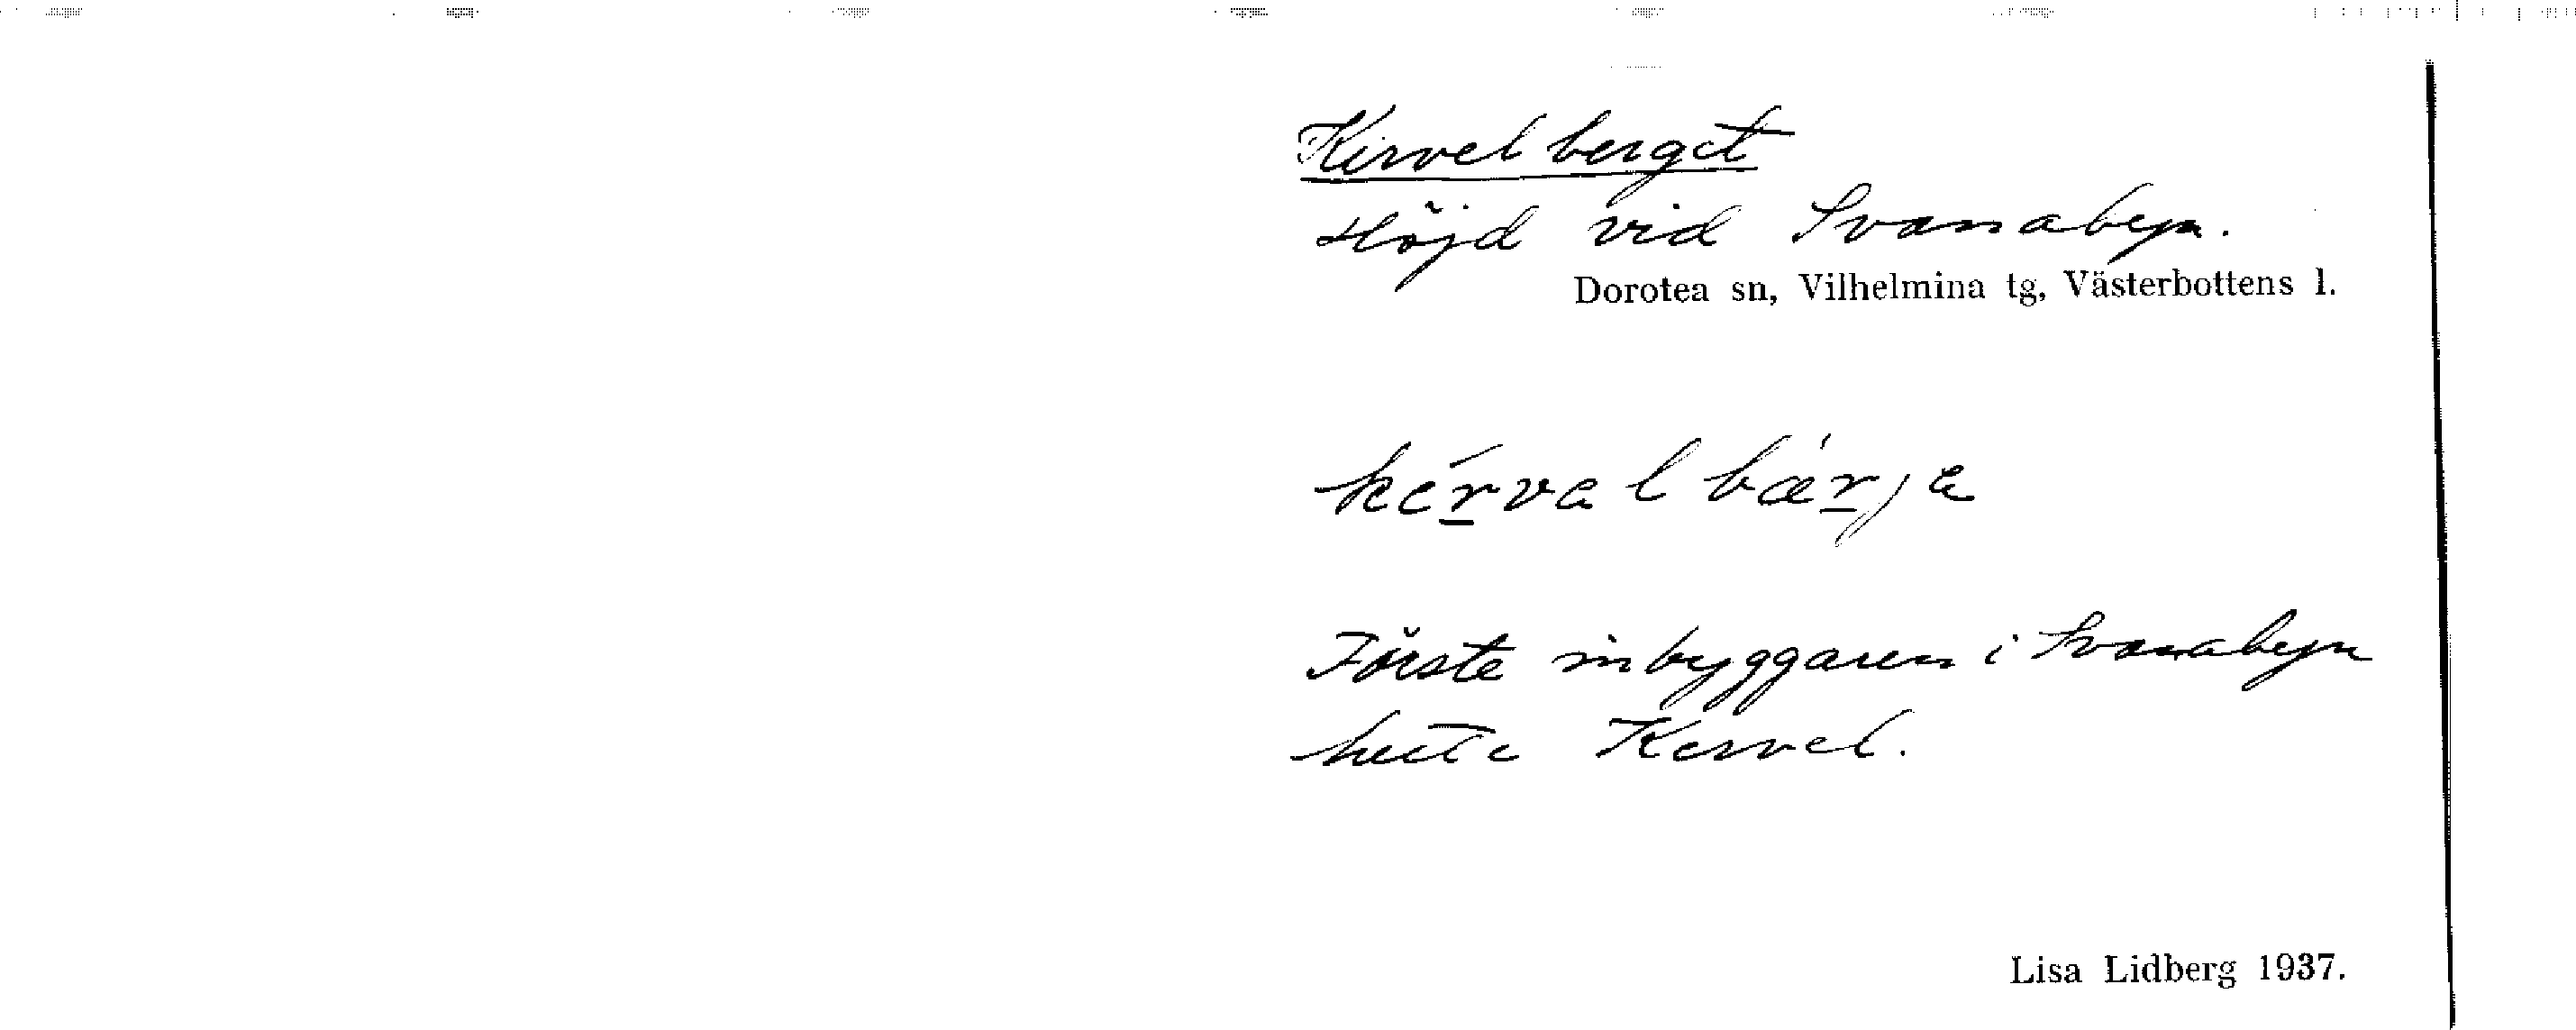 Kervelberget
Höjd vid Svanabyn.
Dorotea sn, Vilhelmina tg, Västerbottens l.
Förste inbyggaren i Svanabyn
hette Kervel.
Lisa Lidberg 1937.